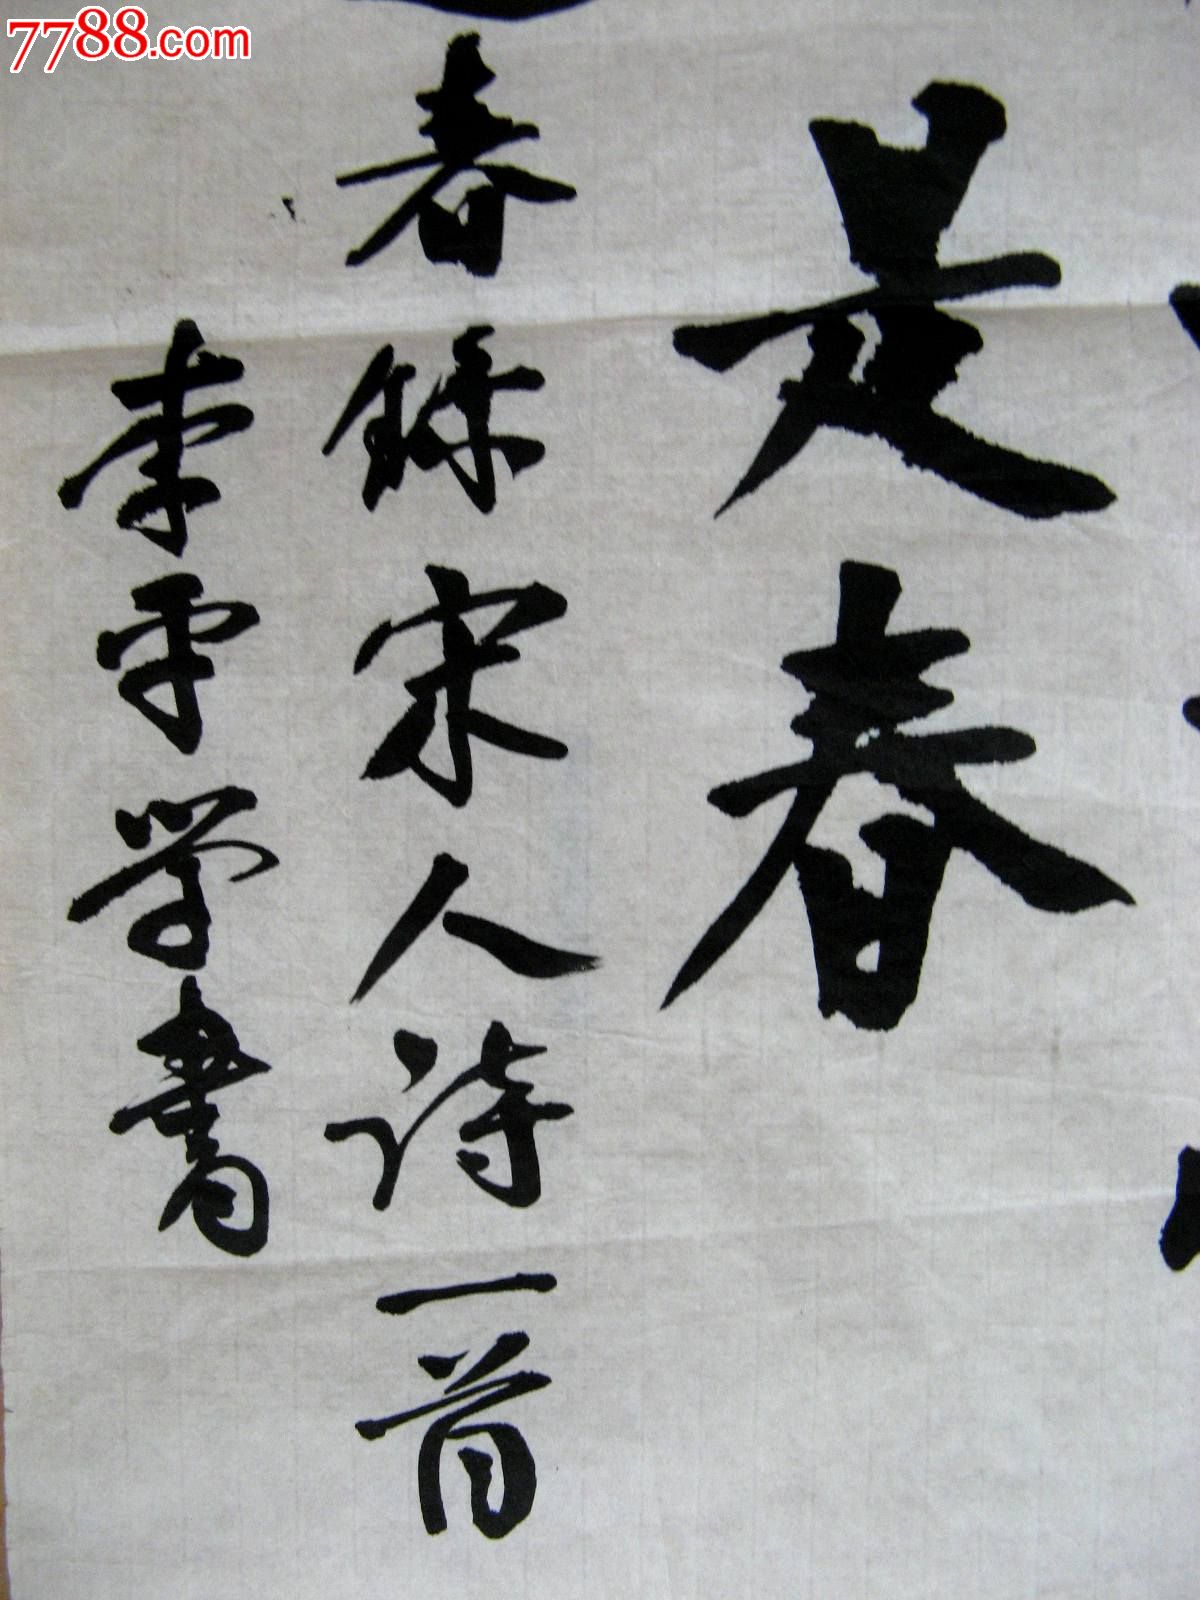 7788.com
是春
春錄宋人诗一首
李平学書